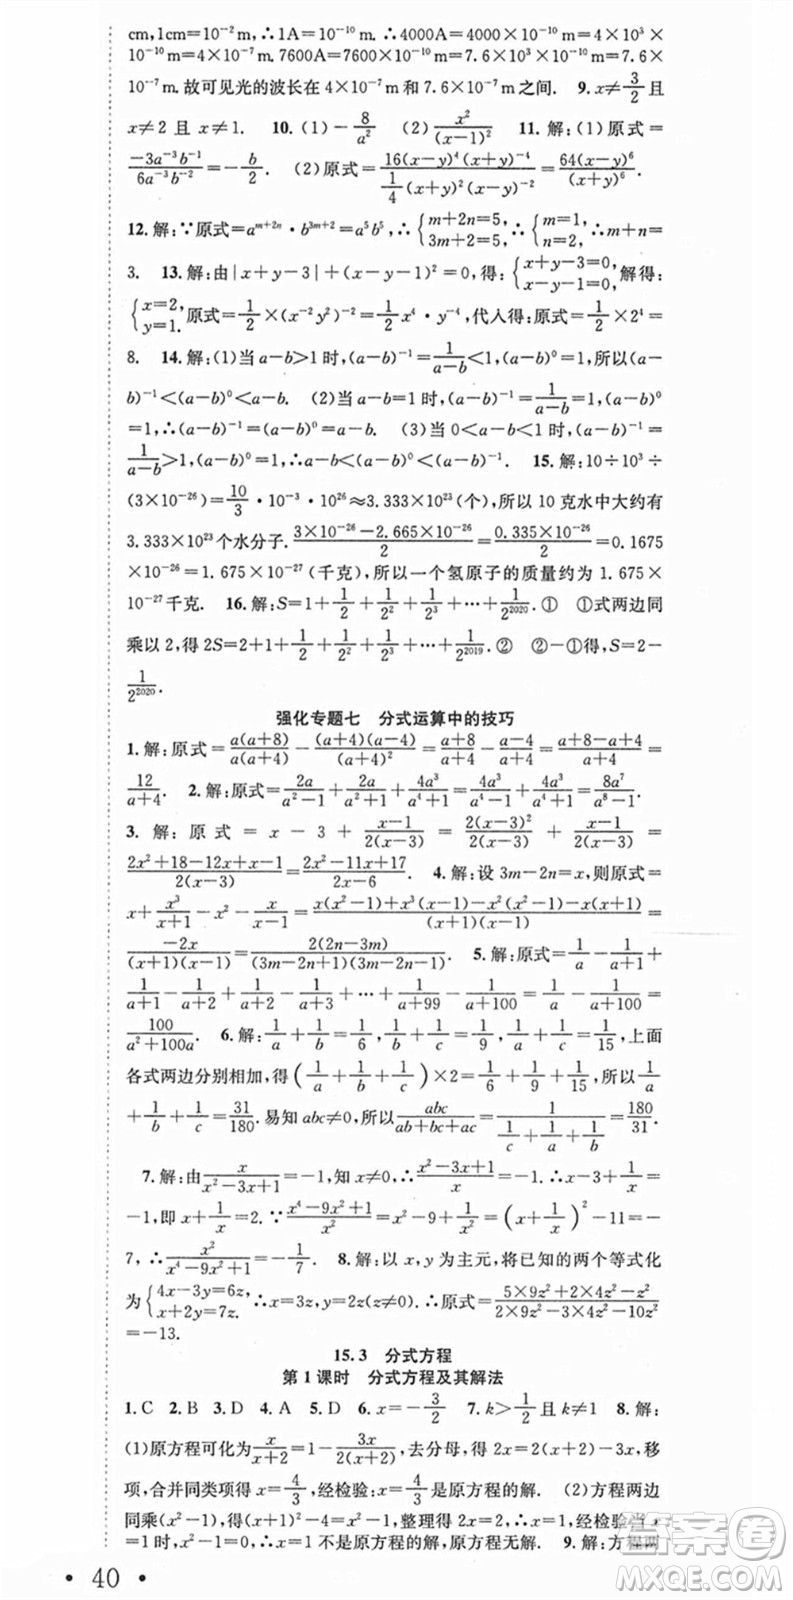 cm,1cm=10⁻² m,∴1A=10⁻¹⁰ m.∴4000A=4000×10⁻¹⁰ m=4×10⁻⁷ m.7600A=7600×10⁻¹⁰ m=7.6×10³×10⁻¹⁰ m=7.6×
10⁻⁷ m.故可见光的波长在 4×10⁻⁷ m 和 7.6×10⁻⁷ m 之间. 9. x≠3/2 且
x≠2 且 x≠1. 10. (1)-8/a² (2) x²/(x-1)² 11. 解:(1)原式=
-3a⁻³b⁻¹/6a⁻³b⁻²=-b/2. (2)原式=16(x-y)⁴(x+y)⁻⁴/[1/4(x+y)²(x-y)⁻²]=64(x-y)⁶/(x+y)⁶.
12. 解:∵原式=a^(m+2n)·b^(3m+2)=a⁵b⁵,∴{m+2n=5, 3m+2=5. ∴{m=1, n=2. ∴m+n=
3. 13. 解:由|x+y-3|+(x-y-1)²=0,得:{x+y-3=0, x-y-1=0, 解得:
{x=2, y=1. 原式=1/2×(x⁻²y²)⁻²=1/2x⁴·y⁻⁴,代入得:原式=1/2×2⁴=
8. 14. 解:(1)当 a-b>1 时,(a-b)⁻¹=1/(a-b)<1,(a-b)⁰=1,所以(a-
b)⁻¹<(a-b)⁰<a-b. (2)当 a-b=1 时,(a-b)⁻¹=1/(a-b)=1,(a-b)⁰
=1,∴(a-b)⁻¹=(a-b)⁰=a-b. (3)当 0<a-b<1 时,(a-b)⁻¹=
1/(a-b)>1,(a-b)⁰=1,∴a-b<(a-b)⁰<(a-b)⁻¹. 15. 解:10÷10³÷
(3×10⁻²⁶)=10/3·10⁻³·10²⁶≈3.333×10²³(个),所以 10 克水中大约有
3.333×10²³个水分子.(3×10⁻²⁶-2.665×10⁻²⁶)/2=0.335×10⁻²⁶/2=0.1675
×10⁻²⁶=1.675×10⁻²⁷(千克),所以一个氢原子的质量约为 1.675×
10⁻²⁷千克. 16. 解:S=1+1/2+1/2²+1/2³+…+1/2²⁰²⁰.① ①式两边同
乘以 2,得 2S=2+1+1/2+1/2²+1/2³+…+1/2²⁰¹⁹.② ②-①得,S=2-
1/2²⁰²⁰.
强化专题七 分式运算中的技巧
1. 解:原式=a(a+8)/a(a+4)-(a+4)(a-4)/(a+4)²=(a+8)/(a+4)-(a-4)/(a+4)=(a+8-a+4)/(a+4)=
12/(a+4). 2. 解:原式=2a/(a²-1)+2a/(a²+1)+4a³/(a⁴+1)=4a³/(a⁴-1)+4a³/(a⁴+1)=8a⁷/(a⁸-1).
3. 解:原式=x-3+(x-1)/2(x-3)=2(x-3)²/2(x-3)+(x-1)/2(x-3)=
(2x²+18-12x+x-1)/2(x-3)=(2x²-11x+17)/(2x-6). 4. 解:设 3m-2n=x,则原式=
x+x³/(x+1)-x²-x²/(x-1)=[x(x²-1)+x³(x-1)-x²(x²-1)-x²(x+1)]/(x+1)(x-1)=
-2x/(x+1)(x-1)=2(2n-3m)/(3m-2n+1)(3m-2n-1). 5. 解:原式=1/a-1/(a+1)+
1/(a+1)-1/(a+2)+1/(a+2)-1/(a+3)+…+1/(a+99)-1/(a+100)=1/a-1/(a+100)=
100/(a²+100a). 6. 解:1/a+1/b=1/6,1/b+1/c=1/9,1/a+1/c=1/15,上面
各式两边分别相加,得(1/a+1/b+1/c)×2=1/6+1/9+1/15,所以1/a
+1/b+1/c=31/180.易知 abc≠0,所以abc/(ab+bc+ac)=1/(1/c+1/a+1/b)=180/31.
7. 解:由x/(x²-3x+1)=-1,知 x≠0,∴(x²-3x+1)/x=-1.∴x-3+1/x=
-1,即 x+1/x=2.∵(x⁴-9x²+1)/x²=x²-9+1/x²=(x+1/x)²-11=-
7,∴x²/(x⁴-9x²+1)=-1/7. 8. 解:以 x,y 为主元,将已知的两个等式化
为{4x-3y=6z, x+2y=7z. ∴x=3z,y=2z(z≠0).∴原式=(5×9z²+2×4z²-z²)/(2×9z²-3×4z²-10z²)
=-13.
15.3 分式方程
第 1 课时 分式方程及其解法
1. C 2. B 3. D 4. A 5. D 6. x=-3/2 7. k>1/2 且 k≠1 8. 解:
(1)原方程可化为x/(x+2)=1-3x/2(x+2),去分母,得 2x=2(x+2)-3x,移
项,合并同类项得 x=4/3,经检验:x=4/3是原方程的解. (2)方程两边
同乘(x²-1),得(x+1)²-4=x²-1,整理得 2x=2,∴x=1,经检验当 x
=1 时,x²-1=0,∴x=1 不是原方程的解,原方程无解. 9. 解:方程两
• 40 •
答案卷
MXQE.COM